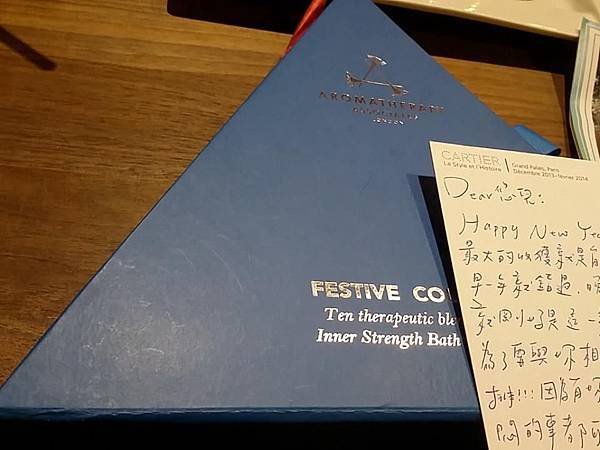 AROMATHERAPY
ASSOCIATES
LONDON
FESTIVE CO
Ten therapeutic ble
Inner Strength Bath
CARTIER
Le Style et l'Histoire
Grand Palais, Paris
Décembre 2013 - février 2014
Dear
Happy New Yea
最大的收穫就是
早一年就錯過
為了要與你相
!!! 因為有你
悶的事都可